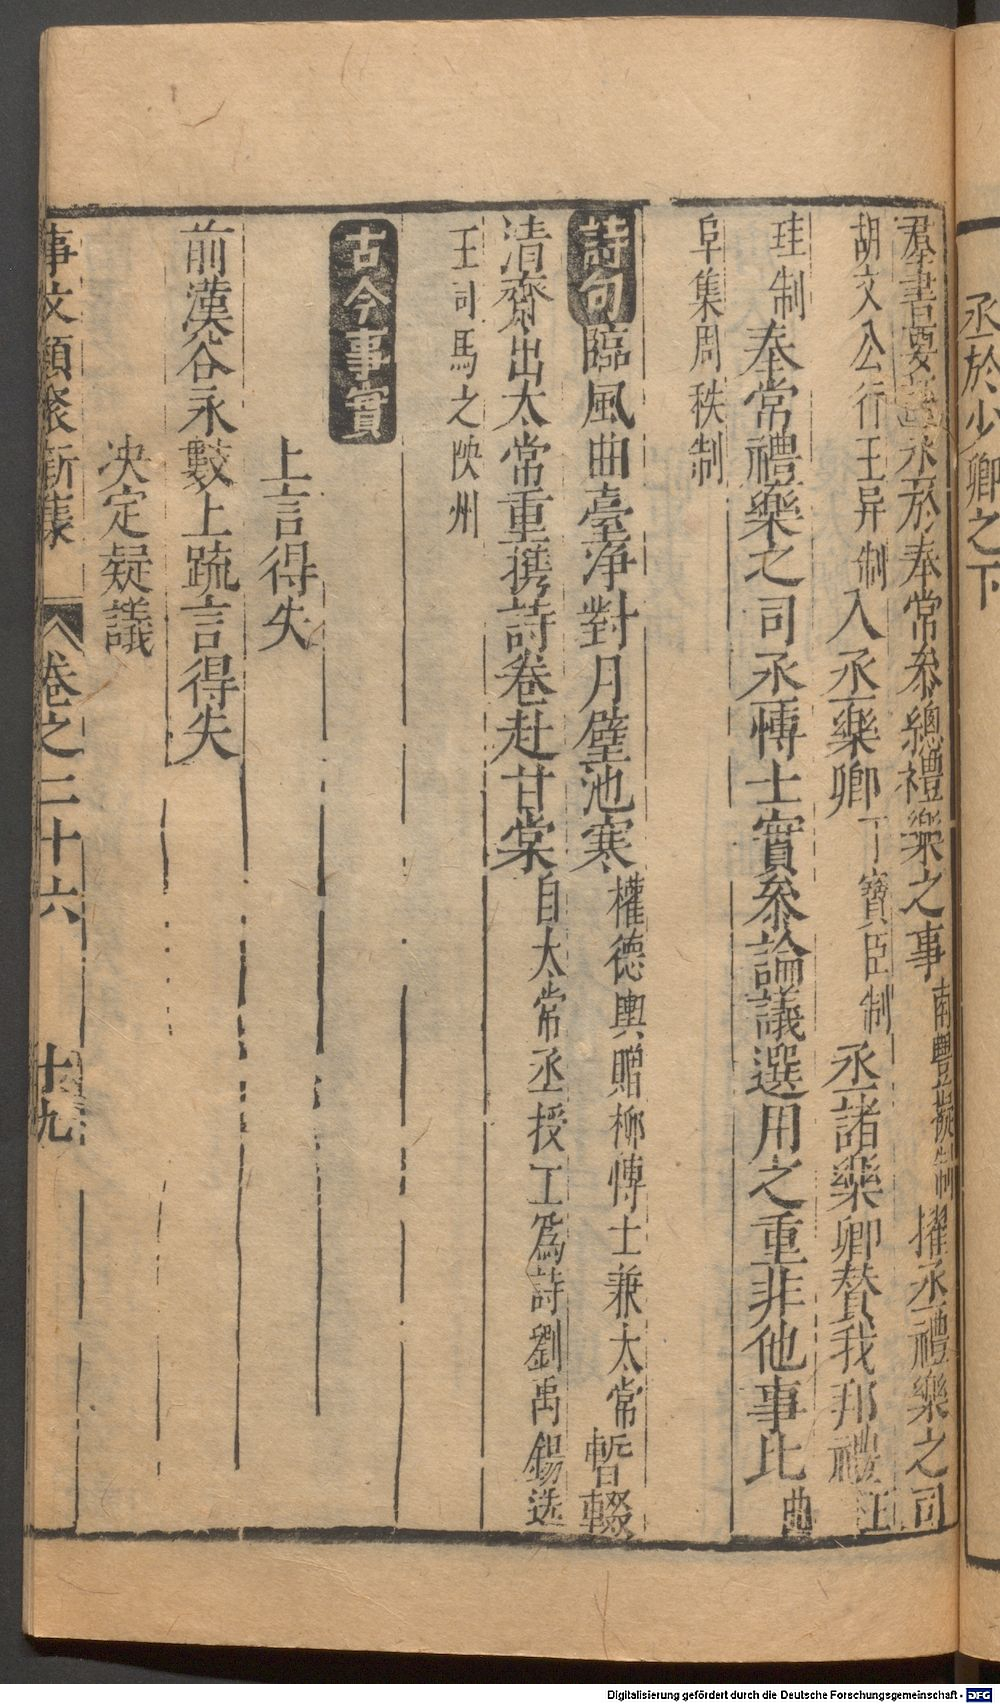 丞於少卿之下
羣書要語丞於奉常叅總禮樂之事南豐擬制擢丞禮樂之司
胡文公行王异制入丞樂卿丁寶臣制丞諸樂卿賛我邦禮王
珪制奉常禮樂之司丞博士實叅論議選用之重非他事比曲
阜集周秩制
詩句臨風曲臺淨對月璧池寒權德輿贈柳博士兼太常暫輟
清齋出太常重携詩卷赴甘棠自太常丞授工爲詩劉禹錫送
王司馬之陝州
古今事實
上言得失
前漢谷永數上䟽言得失
决定疑議
事文類聚新集 卷之二十六 十九
Digitalisierung gefördert durch die Deutsche Forschungsgemeinschaft - DFG